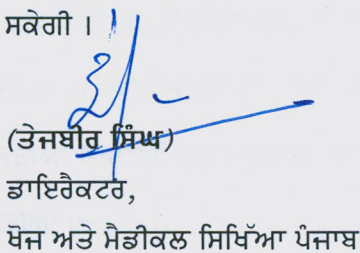 ਸਕੇਗੀ ।
(ਤੇਜਬੀਰ ਸਿੰਘ)
ਡਾਇਰੈਕਟਰ,
ਖੋਜ ਅਤੇ ਮੈਡੀਕਲ ਸਿਖਿੱਆ ਪੰਜਾਬ